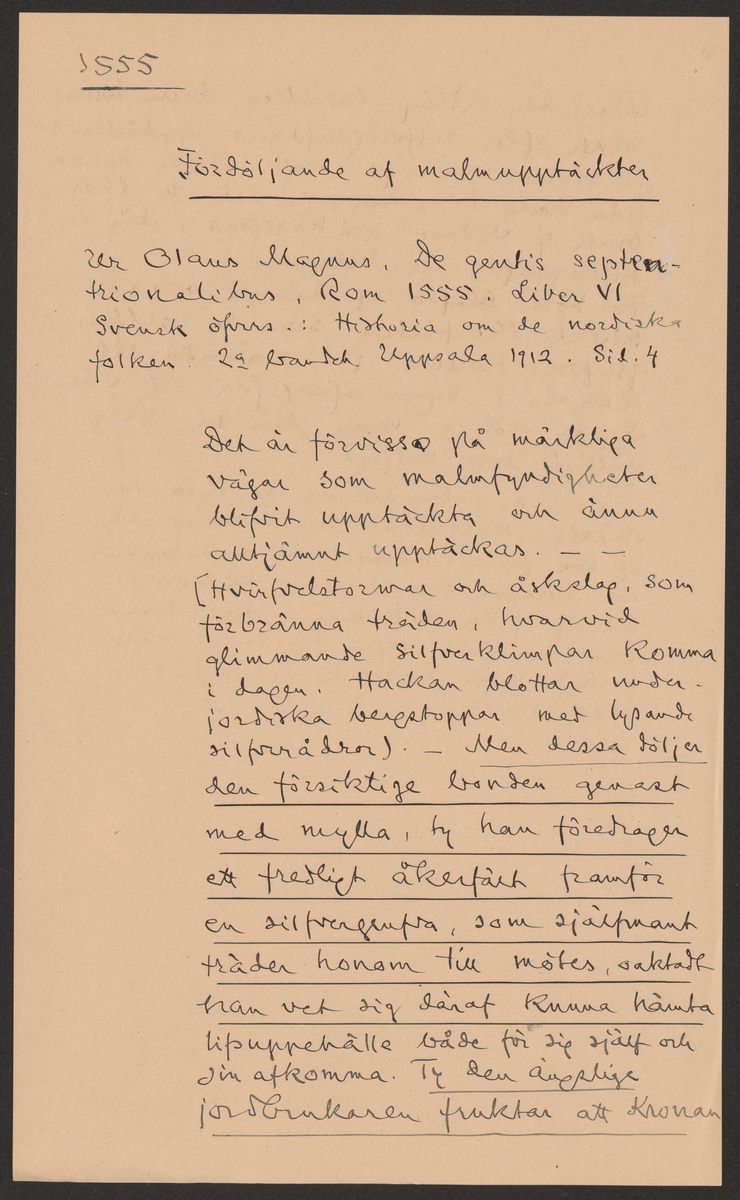 1555
Fördöljande af malmupptäckter
Ur Olaus Magnus. De gentis septen-
trionalibus, Rom 1555. Liber VI
Svensk öfvers.: Historia om de nordiska
folken 2a bandet Uppsala 1912. Sid. 4
Det är förvisso på märkliga
vägar som malmfyndigheter
blifvit upptäckta och ännu
alltjämnt upptäckas. — —
[Hvirfvelstormar och åskslag, som
förbränna träden, hvarvid
glimmande silfverklimpar komma
i dagen. Hackan blottar under-
jordiska bergstoppar med lysande
silfverådror). — Men dessa döljer
den försiktige bonden genast
med mylla, ty han föredrager
ett fredligt åkerfält framför
en silfvergrufva, som självmant
träder honom till mötes, oaktadt
han vet sig däraf kunna hämta
lifsuppehälle både för sig själf och
sin afkomma. Ty den ängslige
jordbrukaren fruktar att Kronan